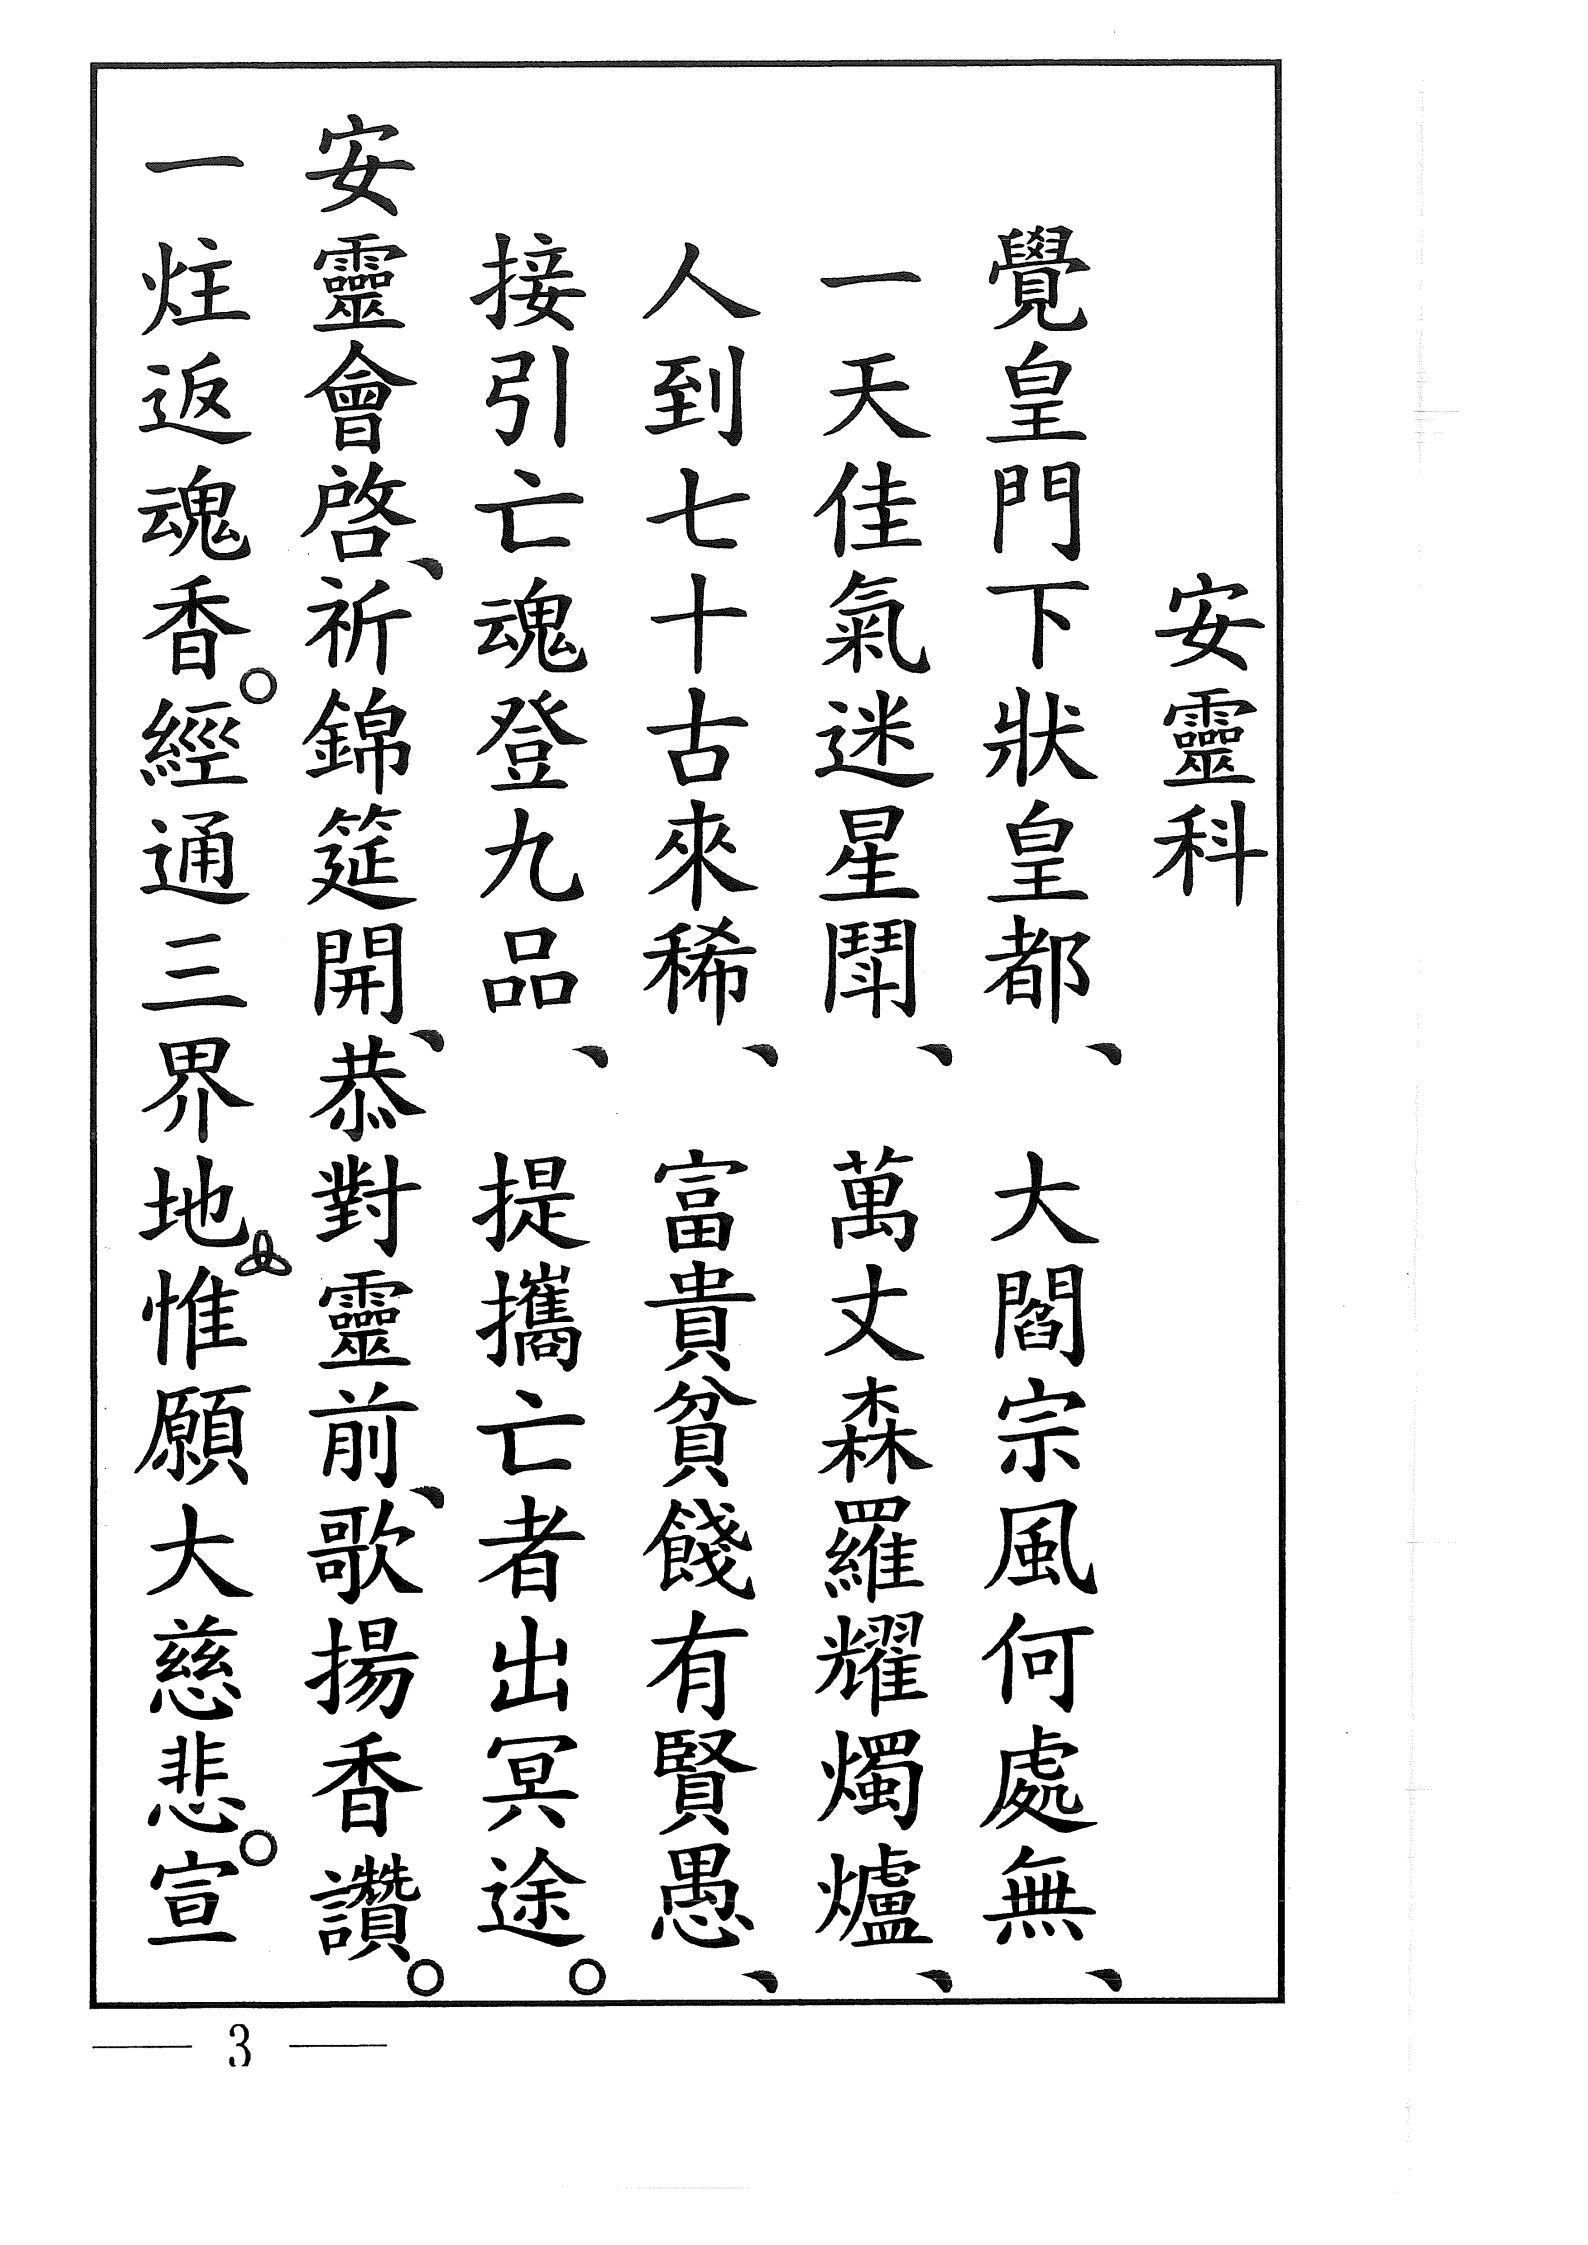 安靈科
覺皇門下狀皇都、大閻宗風何處無、
一天佳氣迷星鬪、萬丈森羅耀燭爐、
人到七十古來稀、富貴貧餞有賢愚、
接引亡魂登九品、提攜亡者出冥途。
安靈會啓、祈錦筵開、恭對靈前、歌揚香讚。
一炷返魂香。經通三界地惟願大慈悲。宣
3